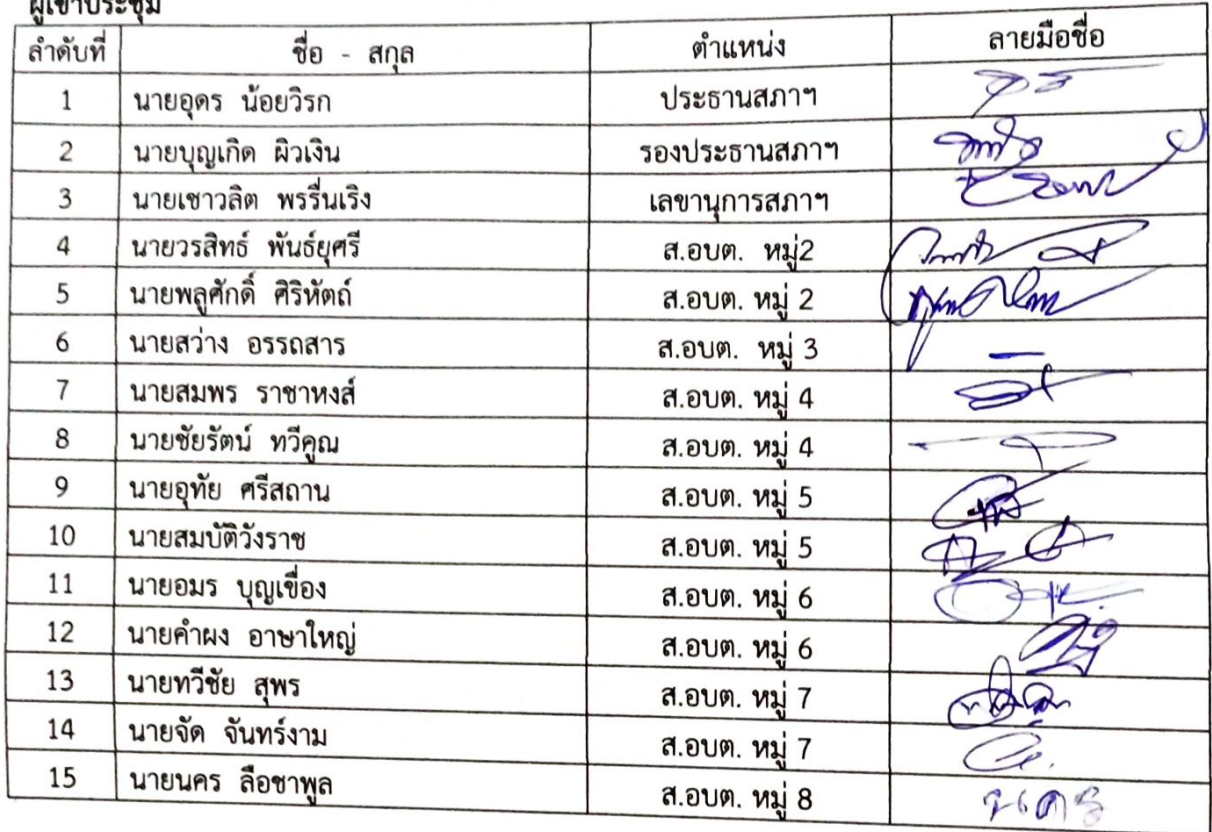 ผู้เข้าประชุม
ลำดับที่ ชื่อ - สกุล ตำแหน่ง ลายมือชื่อ
1 นายอุดร น้อยวิรก ประธานสภาฯ
2 นายบุญเกิด ผิวเงิน รองประธานสภาฯ
3 นายเชาวลิต พรรื่นเริง เลขานุการสภาฯ
4 นายวรสิทธ์ พันธ์ยุศรี ส.อบต. หมู่2
5 นายพลูศักดิ์ ศิริหัตถ์ ส.อบต. หมู่ 2
6 นายสว่าง อรรถสาร ส.อบต. หมู่ 3
7 นายสมพร ราชาหงส์ ส.อบต. หมู่ 4
8 นายชัยรัตน์ ทวีคูณ ส.อบต. หมู่ 4
9 นายอุทัย ศรีสถาน ส.อบต. หมู่ 5
10 นายสมบัติวังราช ส.อบต. หมู่ 5
11 นายอมร บุญเขื่อง ส.อบต. หมู่ 6
12 นายคำผง อาษาใหญ่ ส.อบต. หมู่ 6
13 นายทวีชัย สุพร ส.อบต. หมู่ 7
14 นายจัด จันทร์งาม ส.อบต. หมู่ 7
15 นายนคร ลือชาพูล ส.อบต. หมู่ 8 นคร